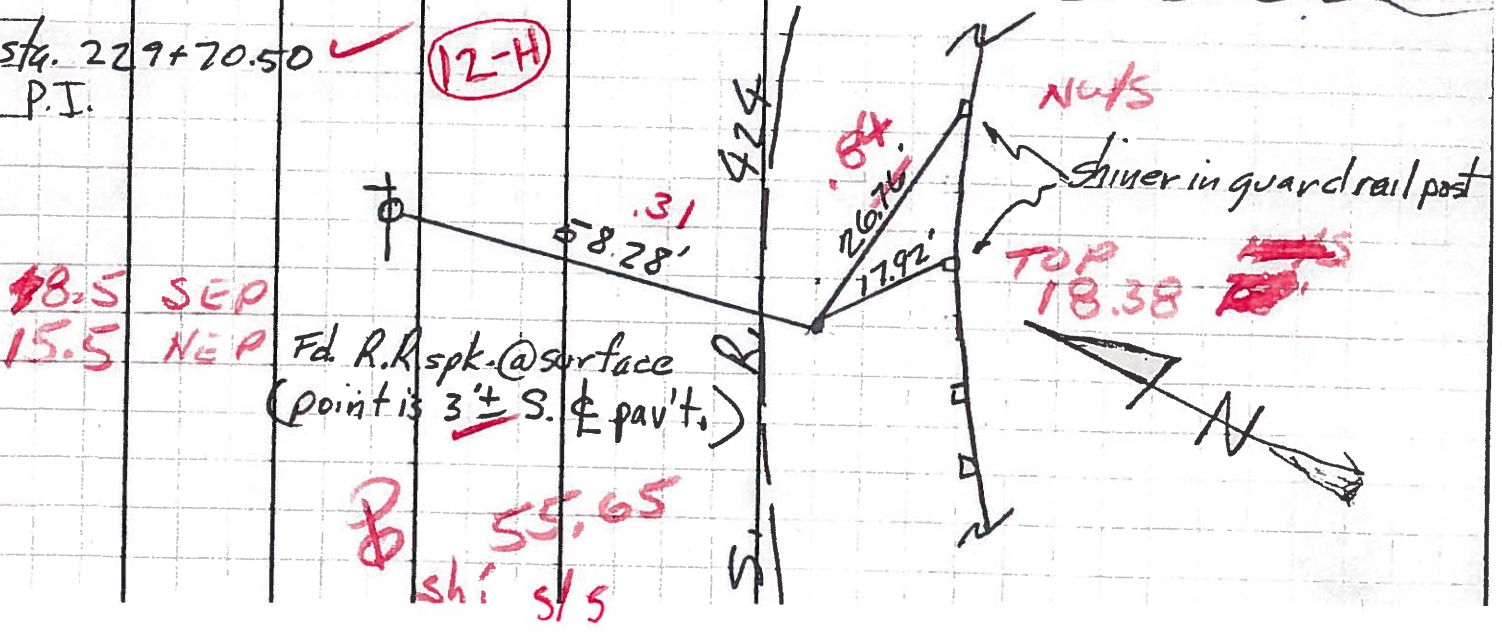 sta. 229+70.50
P.I.
12-H
S. R. 424
.84
26.76'
Nw/s
shiner in guard rail post
.31
58.28'
17.92'
TOP
18.38
8.5 SEP
15.5 NEP
Fd. R.R. spk. @ surface
(point is 3'± S. ℄ pav't.)
N
55.65
sh: s/s